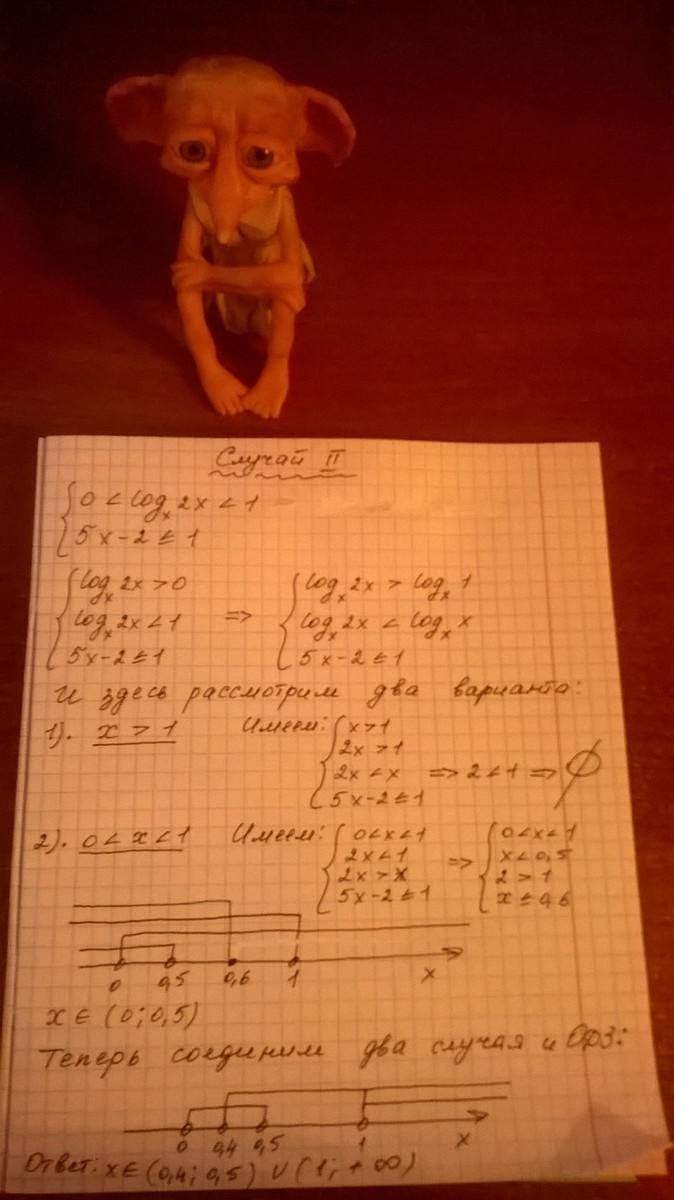 Случай II
0 < log_x 2x < 1
5x-2 ≤ 1
log_x 2x > 0
log_x 2x < 1
5x-2 ≤ 1
=>
log_x 2x > log_x 1
log_x 2x < log_x x
5x-2 ≤ 1
И здесь рассмотрим два варианта:
1). x > 1
Имеем:
x > 1
2x > 1
2x < x => 2 < 1 => ∅
5x-2 ≤ 1
2). 0 < x < 1
Имеем:
0 < x < 1
2x < 1
2x > x
5x-2 ≤ 1
=>
0 < x < 1
x < 0,5
2 > 1
x ≤ 0,6
0 0,5 0,6 1 x
x ∈ (0; 0,5)
Теперь соединим два случая и ОДЗ:
0 0,4 0,5 1 x
Ответ: x ∈ (0,4; 0,5) ∪ (1; +∞)